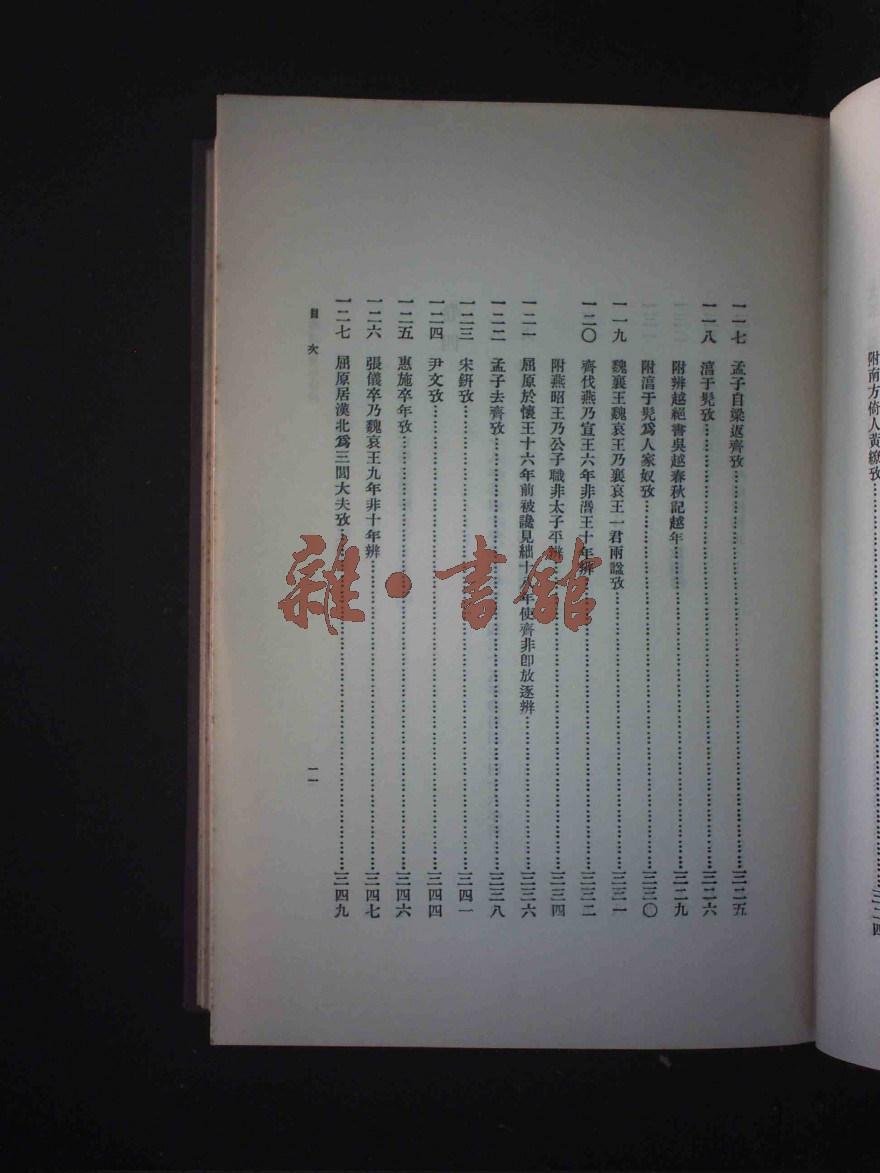 附南方倚人黄繚攷……三二四
一一七　孟子自梁返齊攷……三二五
一一八　淳于髠攷……三二六
附辨越絕書吳越春秋記越年……三二九
附淳于髠爲人家奴攷……三三〇
一一九　魏襄王魏哀王乃襄哀王一君兩諡攷……三三一
一二〇　齊伐燕乃宣王六年非湣王十年辨……三三二
附燕昭王乃公子職非太子平辨……三三四
一二一　屈原於懷王十六年前被讒見絀十八年使齊非卽放逐辨……三三六
一二二　孟子去齊攷……三三八
一二三　宋鈃攷……三四一
一二四　尹文攷……三四四
一二五　惠施卒年攷……三四六
一二六　張儀卒乃魏哀王九年非十年辨……三四七
一二七　屈原居漢北爲三閭大夫攷……三四九
目次
一一
雜·書館